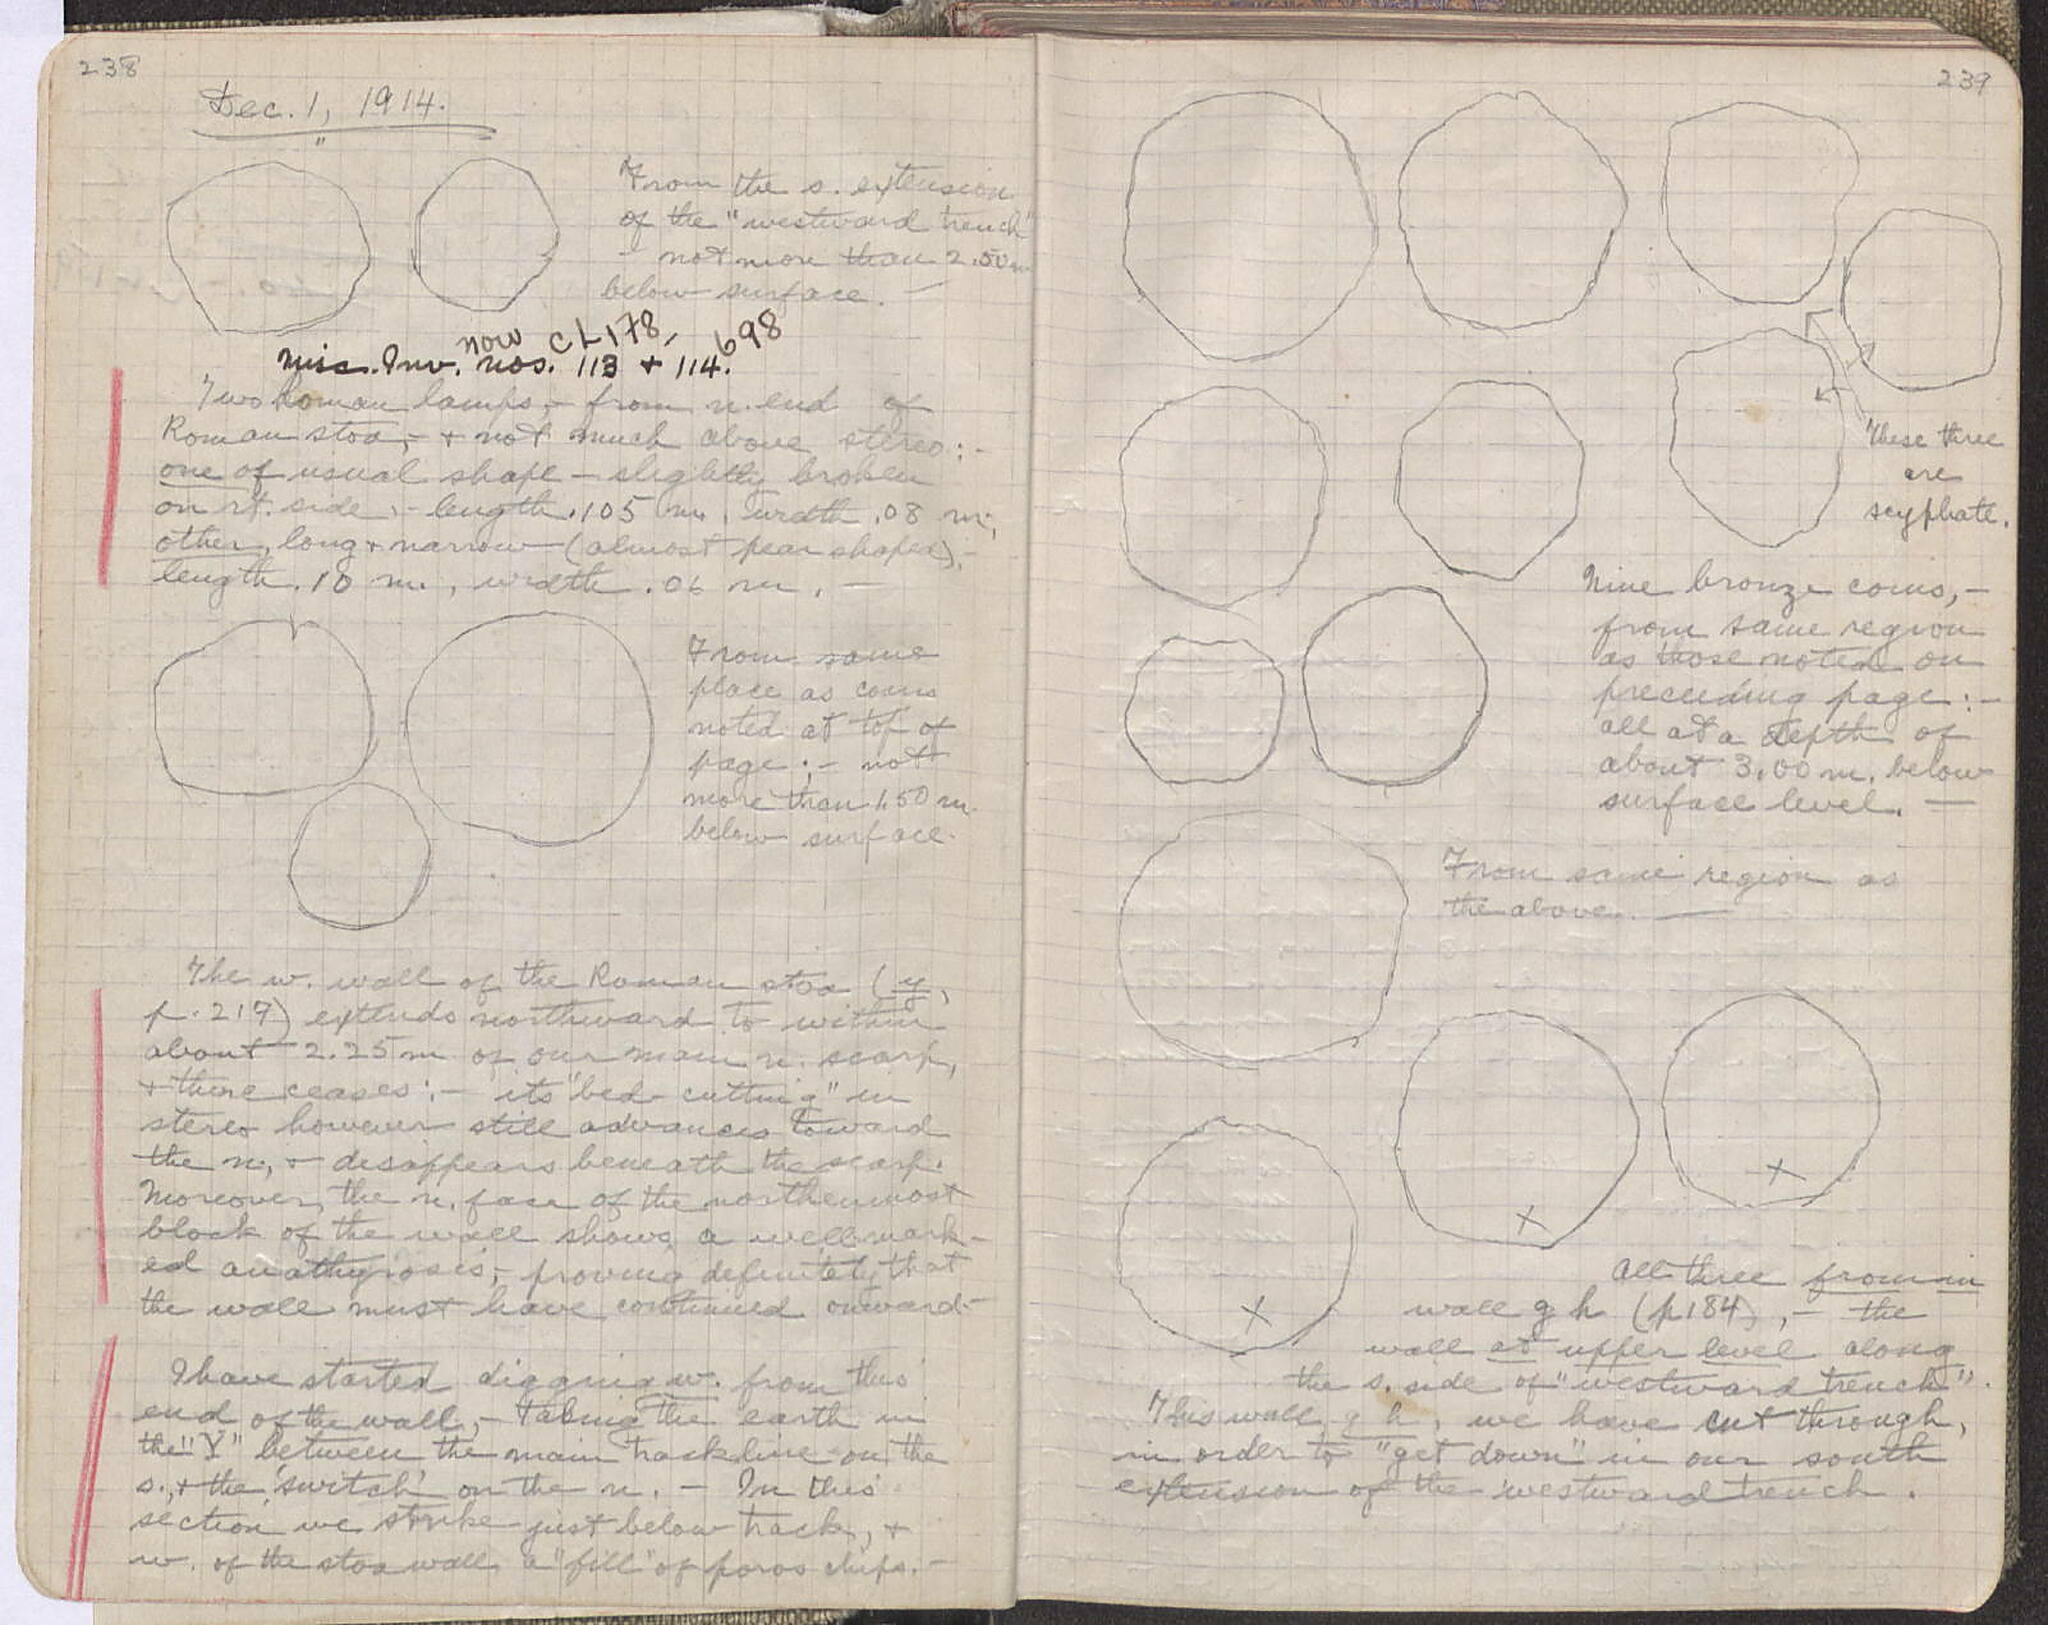 238
Dec. 1, 1914.
"
From the s. extension
of the "westward trench"
- not more than 2.50 m
below surface. —
now CL178, 698
Misc. Inv. nos. 113 + 114.
Two Roman lamps, - from n. end of
Roman stoa, - + not much above stereo: -
one of usual shape - slightly broken
on rt. side, - length .105 m., width .08 m;
other, long + narrow (almost pear shaped), -
length .10 m., width .06 m. —
From same
place as coins
noted at top of
page; - not
more than 1.50 m.
below surface.
The w. wall of the Roman stoa (y,
p. 217) extends northward to within
about 2.25 m of our main n. scarp,
+ there ceases: - its "bed-cutting" in
stereo however still advances toward
the n., + disappears beneath the scarp.
Moreover, the n. face of the northernmost
block of the wall shows a well mark-
ed anathyrosis, - proving definitely that
the wall must have continued onward. -
I have started digging w. from this
end of the wall, - taking the earth in
the "Y" between the main track line on the
s., + the 'switch' on the n. - In this
section we strike just below track, +
w. of the stoa wall a "fill" of poros chips. -
239
These three
are
scyphate.
Nine bronze coins, -
from same region
as those noted on
preceeding page: -
all at a depth of
about 3.00 m. below
surface level. —
From same region as
the above. —
X
X
X
All three from in
wall g h (p184), - the
wall at upper level along
the s. side of "westward trench".
This wall g h, we have cut through,
in order to "get down" in our south
extension of the westward trench.